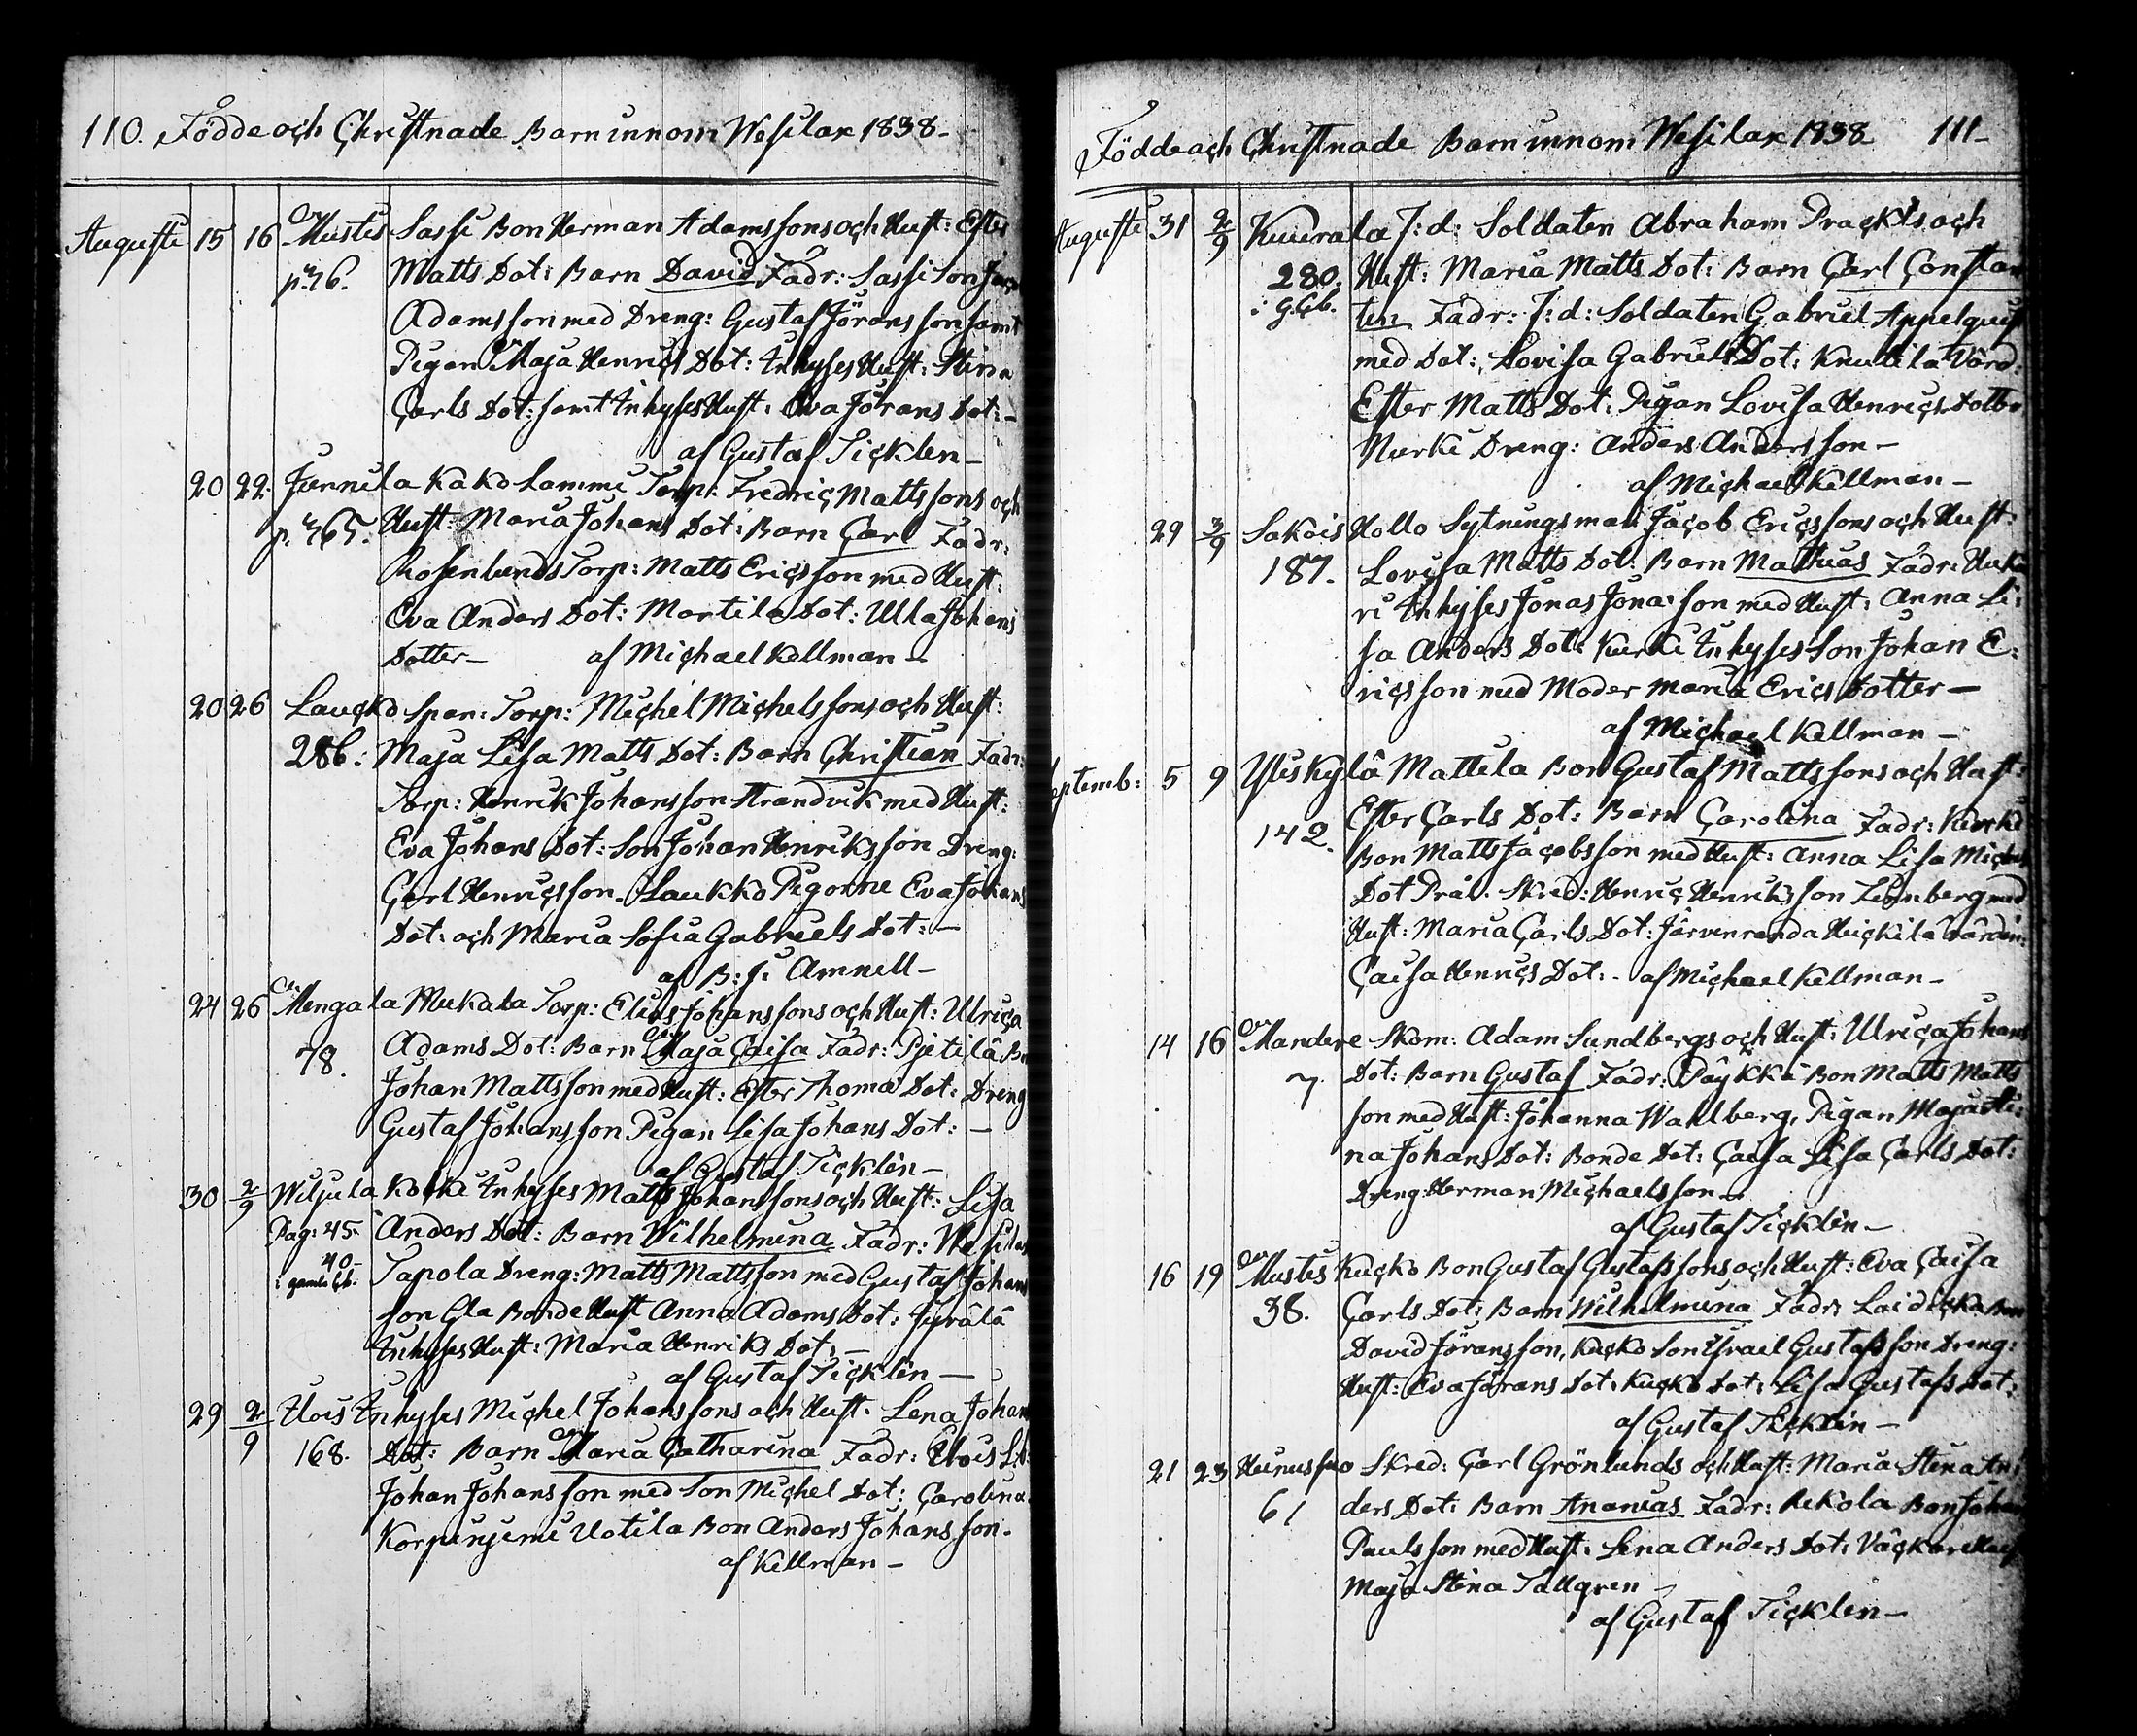 110. Födde och Christnade Barn innom Wesilax 1838-
Augusti 15 16 Mustis Sassi Bon Herman Adamssons och Hust: Ester
p: 36. Matts Dot: Barn David Fadr: Sassi Son
Adamsson med Dreng: Gustaf Jöransson samt
Pigan Maja Henrics Dot: Inhyses Hust: Stina
Carls Dot: samt Inhyses Hust: Eva Jörans Dot: -
af Gustaf Ticklen -
20 22. Junnila Kako Lammi Torp: Fredric Mattssons och
p: 365. Hust: Maria Johans Dot: Barn Carl Fadr:
Rosenlunds Torp: Matts Ericsson med Hust:
Eva Anders Dot: Martila Dot: Ulla Johans
Dotter - af Michael Kellman -
20 26 Laucko Span: Torp: Michel Michelssons och Hust:
286. Maja Lisa Matts Dot: Barn Christian Fadr:
Torp: Henrik Johansson Strandvik med Hust:
Eva Johans Dot: Son Johan Henriksson Dreng:
Carl Henricsson. Laukko Pigorne Eva Johans
Dot: och Maria Sofia Gabriels Dot: -
af B: J: Amnell -
24 26 Mengala Mukala Torp: Elias Johanssons och Hust: Ulrica
78. Adams Dot: Barn Maja Caisa Fadr: Pjetilä Bon
Johan Mattsson med Hust: Ester Thomæ Dot: Dreng
Gustaf Johansson Pigan Lisa Johans Dot: -
af Gustaf Ticklén -
30 2/9 Wiljula Koski Inhyses Matts Johanssons och Hust: Lisa
Pag: 45. Anders Dot: Barn Wilhelmina Fadr:
40- i gamla Cb. Tapola Dreng: Matts Mattsson med Gustaf Johans
son Bonde Hust Anna Adams Dot:
Inhyses Hust: Maria Henriks Dot: -
af Gustaf Ticklén -
29 2/9 Inhyses Michel Johanssons och Hust: Lena Johans
168. Dot: Barn Maria Catharina Fadr:
Johan Johansson med Son Michel Dot: Carolina
Korpinjemi Uotila Bon Anders Johansson.
af Kellman -
Födde och Christnade Barn innom Wesilax 1838 111-
Augusti 31 2/9 Kuurala f: d: Soldaten Abraham Prackts och
280. Hust: Maria Matts Dot: Barn Carl Constan
i g.Cb. tin Fadr: f: d: Soldaten Gabriel Appelqvist
med Dot: Lovisa Gabriels Dot: Knutila Värd:
Ester Matts Dot: Pigan Lovisa Henrics Dotter
Nurki Dreng: Anders Andersson -
af Michael Kellman -
29 3/9 Sakois Hollo Sytningsman Jacob Ericssons och Hust:
187. Lovisa Matts Dot: Barn Mathias Fadr:
ri Inhyses Jonas Jonasson med Hust: Anna Li:
sa Anders Dot: Kurki Inhyses Son Johan E:
ricsson med Moder Maria Erics Dotter -
af Michael Kellman -
Septemb: 5 9 Yliskylä Mattila Bon Gustaf Mattssons och Hust:
142. Ester Carls Dot: Barn Carolina Fadr: Kurki
Bon Matts Jacobsson med Hust: Anna Lisa Michels
Dot Skred: Henric Henriksson med
Hust: Maria Carls Dot: Järvenranda Heickilä Värdin:
Caisa Henrics Dot: - af Michael Kellman -
14 16 Mandere Skom: Adam Sundbergs och Hust: Ulrica Johans
7. Dot: Barn Gustaf Fadr: Päykkä Bon Matts Matts
son med Hust: Johanna Wahlberg, Pigan Maja Sti:
na Johans Dot: Bonde Dot: Caisa Lisa Carls Dot:
Dreng: Herman Michaelsson -
af Gustaf Ticklén -
16 19 Mustis Kucko Bon Gustaf Gustafssons och Hust: Eva Caisa
38. Carls Dot: Barn Wilhelmina Fadr: Laidicka Bon
David Jöransson, Kucko Son Israel Gustafsson Dreng:
Hust: Eva Jörans Dot: Kucko Dot: Lisa Gustafs Dot:
af Gustaf Ticklén -
21 23 Heinusuo Skred: Carl Grönlunds och Hust: Maria Stina An:
61 ders Dot: Barn Ananias Fadr: Rekola Bon Johan
Paulsson med Hust: Lena Anders Dot: Väckare
Maja Stina Tallgren -
af Gustaf Ticklen -